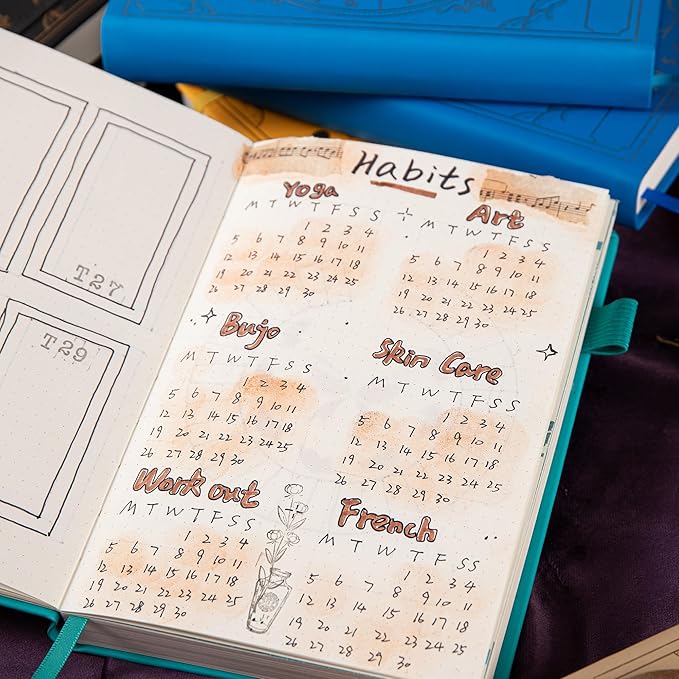 T27
T29
Habits
Yoga
M T W T F S S
1 2 3 4
5 6 7 8 9 10 11
12 13 14 15 16 17 18
19 20 21 22 23 24 25
26 27 28 29 30
Art
M T W T F S S
1 2 3 4
5 6 7 8 9 10 11
12 13 14 15 16 17 18
19 20 21 22 23 24 25
26 27 28 29 30
Bujo
M T W T F S S
1 2 3 4
5 6 7 8 9 10 11
12 13 14 15 16 17 18
19 20 21 22 23 24 25
26 27 28 29 30
Skin Care
M T W T F S S
1 2 3 4
5 6 7 8 9 10 11
12 13 14 15 16 17 18
19 20 21 22 23 24 25
26 27 28 29 30
Work out
M T W T F S S
1 2 3 4
5 6 7 8 9 10 11
12 13 14 15 16 17 18
19 20 21 22 23 24 25
26 27 28 29 30
French
M T W T F S S
1 2 3 4
5 6 7 8 9 10 11
12 13 14 15 16 17 18
19 20 21 22 23 24 25
26 27 28 29 30